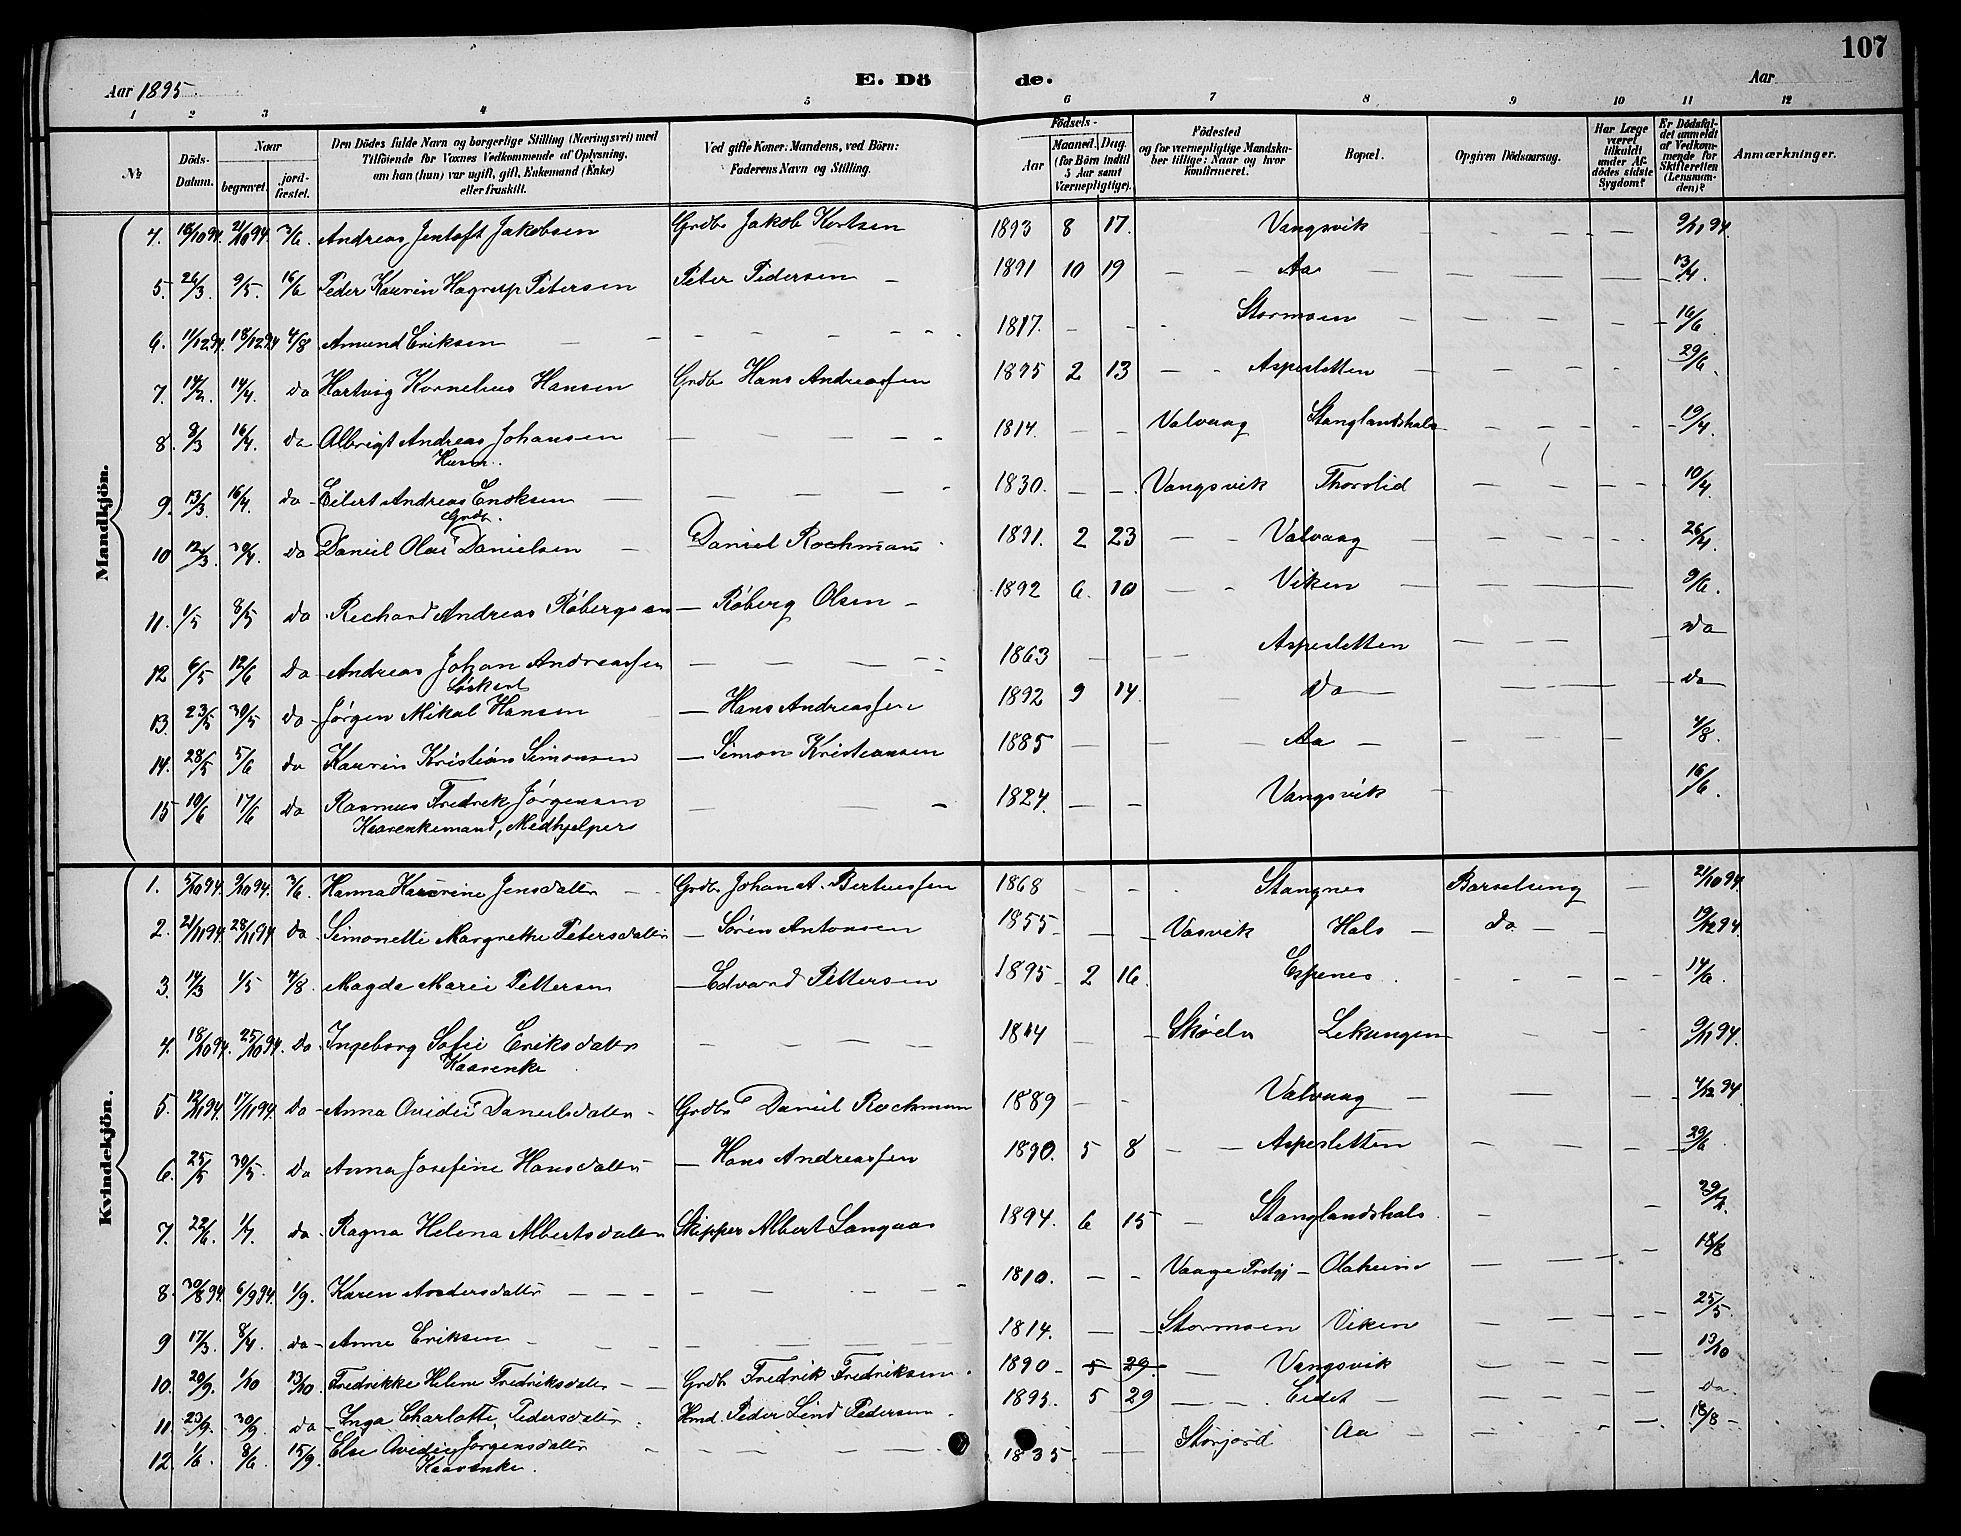 107
Aar 1895.
E. Dö de.
Aar
1 2 3 4 5 6 7 8 9 10 11 12
№
Döds-Datum.
Naar
begravet.
jord-fæstet.
Den Dödes fulde Navn og borgerlige Stilling (Næringsvei) med
Tilföiende for Voxnes Vedkommende af Oplysning,
om han (hun) var ugift, gift, Enkemand (Enke)
eller fraskilt.
Ved gifte Koner: Mandens, ved Börn:
Faderens Navn og Stilling.
Födsels-
Aar
Maaned. Dag.
(for Börn indtil
5 Aar samt
Værnepligtige).
Födested
og for værnepligtige Mandska-
ber tillige: Naar og hvor
konfirmeret.
Bopæl.
Opgiven Dödsaarsag.
Har Læge
været
tilkaldt
under Af-
dödes sidste
Sygdom?
Er Dödsfal-
det anmeldt
af Vedkom-
mende for
Skifteretten
(Lensman-
den)?
Anmærkninger.
Mandkjön.
4. 18/10 94. 2/10 94. 3/6. Andreas Jentoft Jakobsen Grdbr Jakob Kortsen 1893 8 17. Vangsvik 9/11 94.
5. 26/3 9/5. 16/6 Peder Kaurin Hagerup Petersen Peter Pedersen 1891 10 19 Aa 13/4.
6. 11/12 94. 18/12 94 4/8 Amund Eriksen 1817. Stormoen 16/6.
7. 14/2. 14/4. do Hartvig Kornelius Hansen Grdbr Hans Andreassen 1895 2 13 Aspesletten 29/6.
8. 8/3 16/4. do Albrigt Andreas Johansen 1814. Valvaag Stanglandshals 19/4.
Husm.
9. 13/3. 16/4. do Eilert Andreas Enoksen 1830. Vangsvik Thorslid 10/4.
Grdbr.
10 12/3. 30/4. do Daniel Olai Danielsen Daniel Rochman 1891. 2 23 Valvaag 26/4.
11. 1/5 8/5 do Rechard Andreas Røbergsen Røberg Olsen 1892 6. 10 Viken 9/6.
12 6/5 12/6 do Andreas Johan Andreassen 1863 Aspesletten do
Løskarl
13. 23/5 30/5 do Jørgen Mikal Hansen Hans Andreassen 1892 9 14 do do
14. 28/5 5/6 do Kaurin Kristian Simonsen Simon Kristiansen 1885 Aa 4/8.
15 10/6 17/6 do Rasmus Fredrik Jørgensen 1824. Vangsvik 16/6.
Kaarenkemand, Medhjelper
Kvindekjön.
1. 5/10 94. 9/10 94. 3/6. Hanna Kaurine Jensdatter Grdbr Johan A. Bertheussen 1868 Stangnes Barselseng 21/10 94.
2. 21/11 94 28/11 94 do Simonette Margrethe Petersdatter Søren Antonsen 1855 Vasvik Hals do 19/12 94.
3. 14/3 1/5 4/8. Magda Marie Pettersen Edvard Pettersen 1895 2 16. Espenes 14/6.
4. 18/10 94. 25/10 94. do Ingeborg Sofie Eriksdatter 1814 Skøeln Lekangen 9/11 94.
Kaarenke
5. 12/11 94. 17/11 94. do Anna Ovidie Danielsdatter Grdbr Daniel Rochman 1889 Valvaag 4/12 94.
6. 25/5 30/5. do Anna Josefine Hansdatter Hans Andreassen 1890. 5 8 Aspesletten 29/6
7. 22/6. 1/7. do Ragna Helena Albertsdatter Skipper Albert Langaas 1894. 6 15 Stanglandshals
8. 30/8 94. 6/9 94. 1/9. Karen Andersdatter 1810. Vaage Prstgj Olaheim 18/8
9 17/3. 8/4. do Anne Eriksen 1814. Stormoen Viken 25/5.
10. 20/9. 1/10 13/10. Fredrikke Helene Fredriksdatter Grdbr Fredrik Fredriksen 1890 5 29. Vangsvik 13/10
11. 23/9. 30/9. do Inga Charlotte Pedersdatter Hmd. Peder Lind Pedersen 1895. 5 29 Eidet do.
12. 1/6. 8/6 15/9. Else Ovidie Jørgensdatter 1835 Storjord Aa 18/8
Kaarenke.